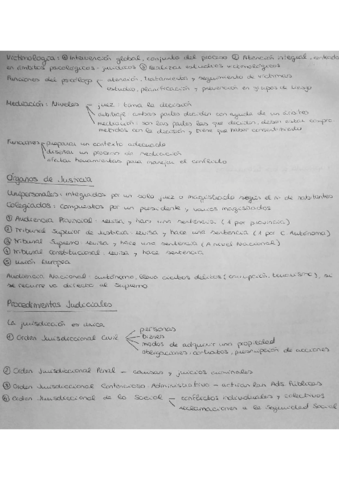 Victimología: ① Intervención global, conjunto del proceso ② Atención integral, centrada
en ámbitos psicológicos - jurídicos ③ Realizar estudios victimológicos
Funciones del psicólogo atención, tratamiento y seguimiento de víctimas
estudio, planificación y prevención en grupos de riesgo
Mediación: Niveles juez: toma la decisión
arbitraje: ambas partes deciden con ayuda de un
mediación: son las partes las que deciden, deben estar
con la decisión y tiene que haber
Funciones preparar un contexto adecuado
diseñar un proceso de mediación
ofertar herramientas para manejar el conflicto
Órganos de Justicia
Unipersonales: integrados por un solo juez o magistrado según el nº de habitantes
Colegiados: compuestos por un presidente y varios magistrados
① Audiencia Provincial: revisa y hace una sentencia (1 por provincia)
② Tribunal Superior de Justicia: revisa y hace una sentencia (1 por C. Autónoma)
③ Tribunal Supremo: revisa y hace una sentencia (A nivel Nacional)
④ Tribunal Constitucional: revisa y hace sentencia
⑤ Unión Europea
Audiencia Nacional: autónomo, lleva ciertos delitos (corrupción, terrorismo), si
se recurre va directo al Supremo
Procedimientos Judiciales
La jurisdicción es única
① Orden Jurisdiccional Civil personas
bienes
modos de adquirir una propiedad
obligaciones: contratos, prescripción de acciones
② Orden Jurisdiccional Penal → causas y juicios criminales
③ Orden Jurisdiccional Contencioso Administrativo → las Ads Públicas
④ Orden Jurisdiccional de lo Social conflictos individuales y colectivos
reclamaciones a la Seguridad Social